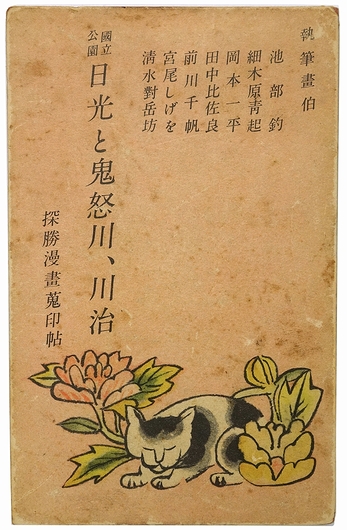 執筆畫伯
池部釣
細木原靑起
岡本一平
田中比佐良
前川千帆
宮尾しげを
淸水對岳坊
國立公園
日光と鬼怒川、川治
探勝漫畫蒐印帖